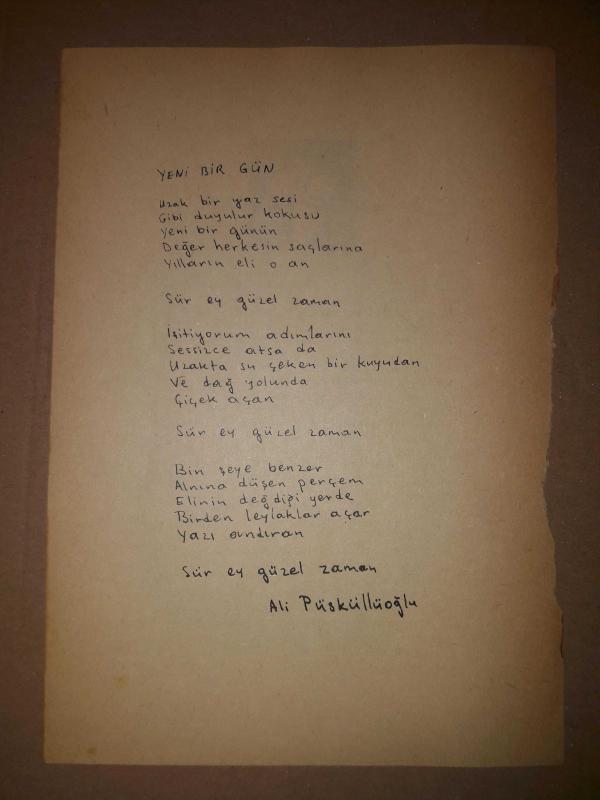 YENİ BİR GÜN
Uzak bir yaz sesi
Gibi duyulur kokusu
Yeni bir günün
Değer herkesin saçlarına
Yılların eli o an
Sür ey güzel zaman
İşitiyorum adımlarını
Sessizce atsa da
Uzakta su çeken bir kuyudan
Ve dağ yolunda
Çiçek açan
Sür ey güzel zaman
Bin şeye benzer
Alnına düşen perçem
Elinin değdiği yerde
Birden leylaklar açar
Yazı andıran
Sür ey güzel zaman
Ali Püsküllüoğlu